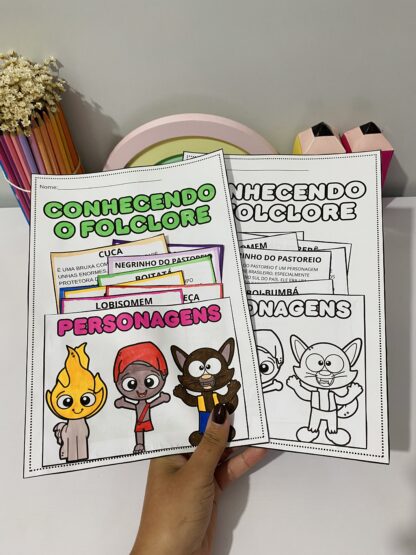 Nome:
CONHECENDO
O FOLCLORE
CUCA
É UMA BRUXA COM
UNHAS ENORMES.
PROTETORA D
NEGRINHO DO PASTOREIO
BOITATÁ
LOBISOMEM
EÇA
PERSONAGENS
NHECENDO
FOLCLORE
OMEM
INHO DO PASTOREIO
DO PASTOREIO É UM PERSONAGEM
BRASILEIRO, ESPECIALMENTE
NO SUL DO PAÍS. ELE ERA UM
OI-BUMBÁ
ONAGENS